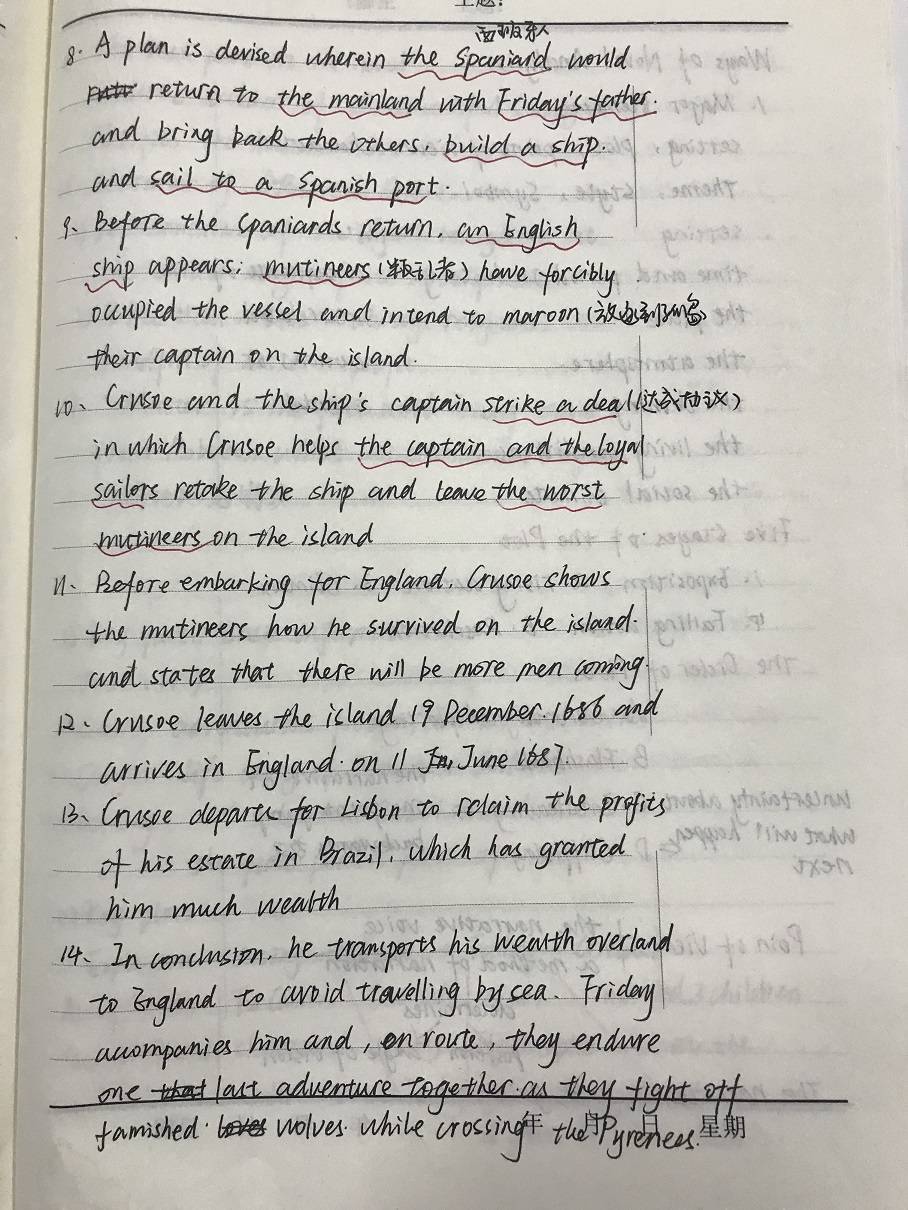 主题:
西班牙人
8. A plan is devised wherein the Spaniard would
return to the mainland with Friday's father.
and bring back the others, build a ship.
and sail to a Spanish port.
9、Before the Spaniards return, an English
ship appears; mutineers (叛乱者) have forcibly
occupied the vessel and intend to maroon (放逐到孤岛)
their captain on the island.
10、Crusoe and the ship's captain strike a deal (达成协议)
in which Crusoe helps the captain and the loyal
sailors retake the ship and leave the worst
mutineers on the island
11、Before embarking for England, Crusoe shows
the mutineers how he survived on the island.
and states that there will be more men coming.
12、Crusoe leaves the island 19 December. 1686 and
arrives in England. on 11 June 1687.
13、Crusoe departs for Lisbon to rclaim the profits
of his estate in Brazil, which has granted
him much wealth
14、In conclusion, he transports his wealth overland
to England to avoid travelling by sea. Friday
accompanies him and, en route, they endure
one that last adventure together as they fight off
famished wolves while crossing the Pyrenees.
年 月 日 星期